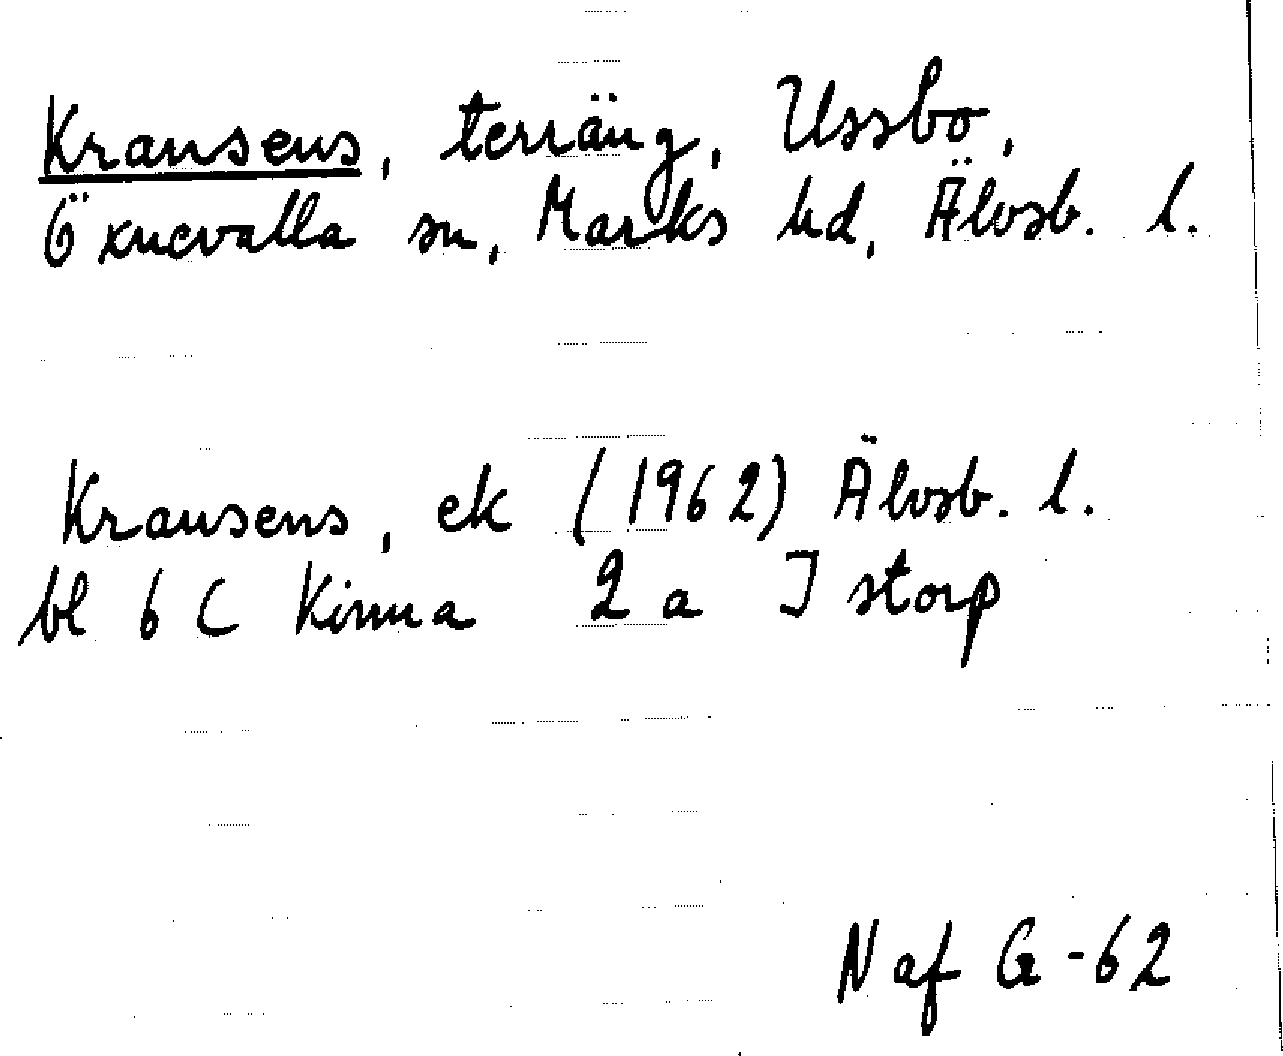 Kransens, terräng, Ussbo,
Öxnevalla sn, Marks hd, Älvsb. l.
Kransens, ek (1962) Älvsb. l.
bl 6 C Kinna 2 a Istorp
N af G-62